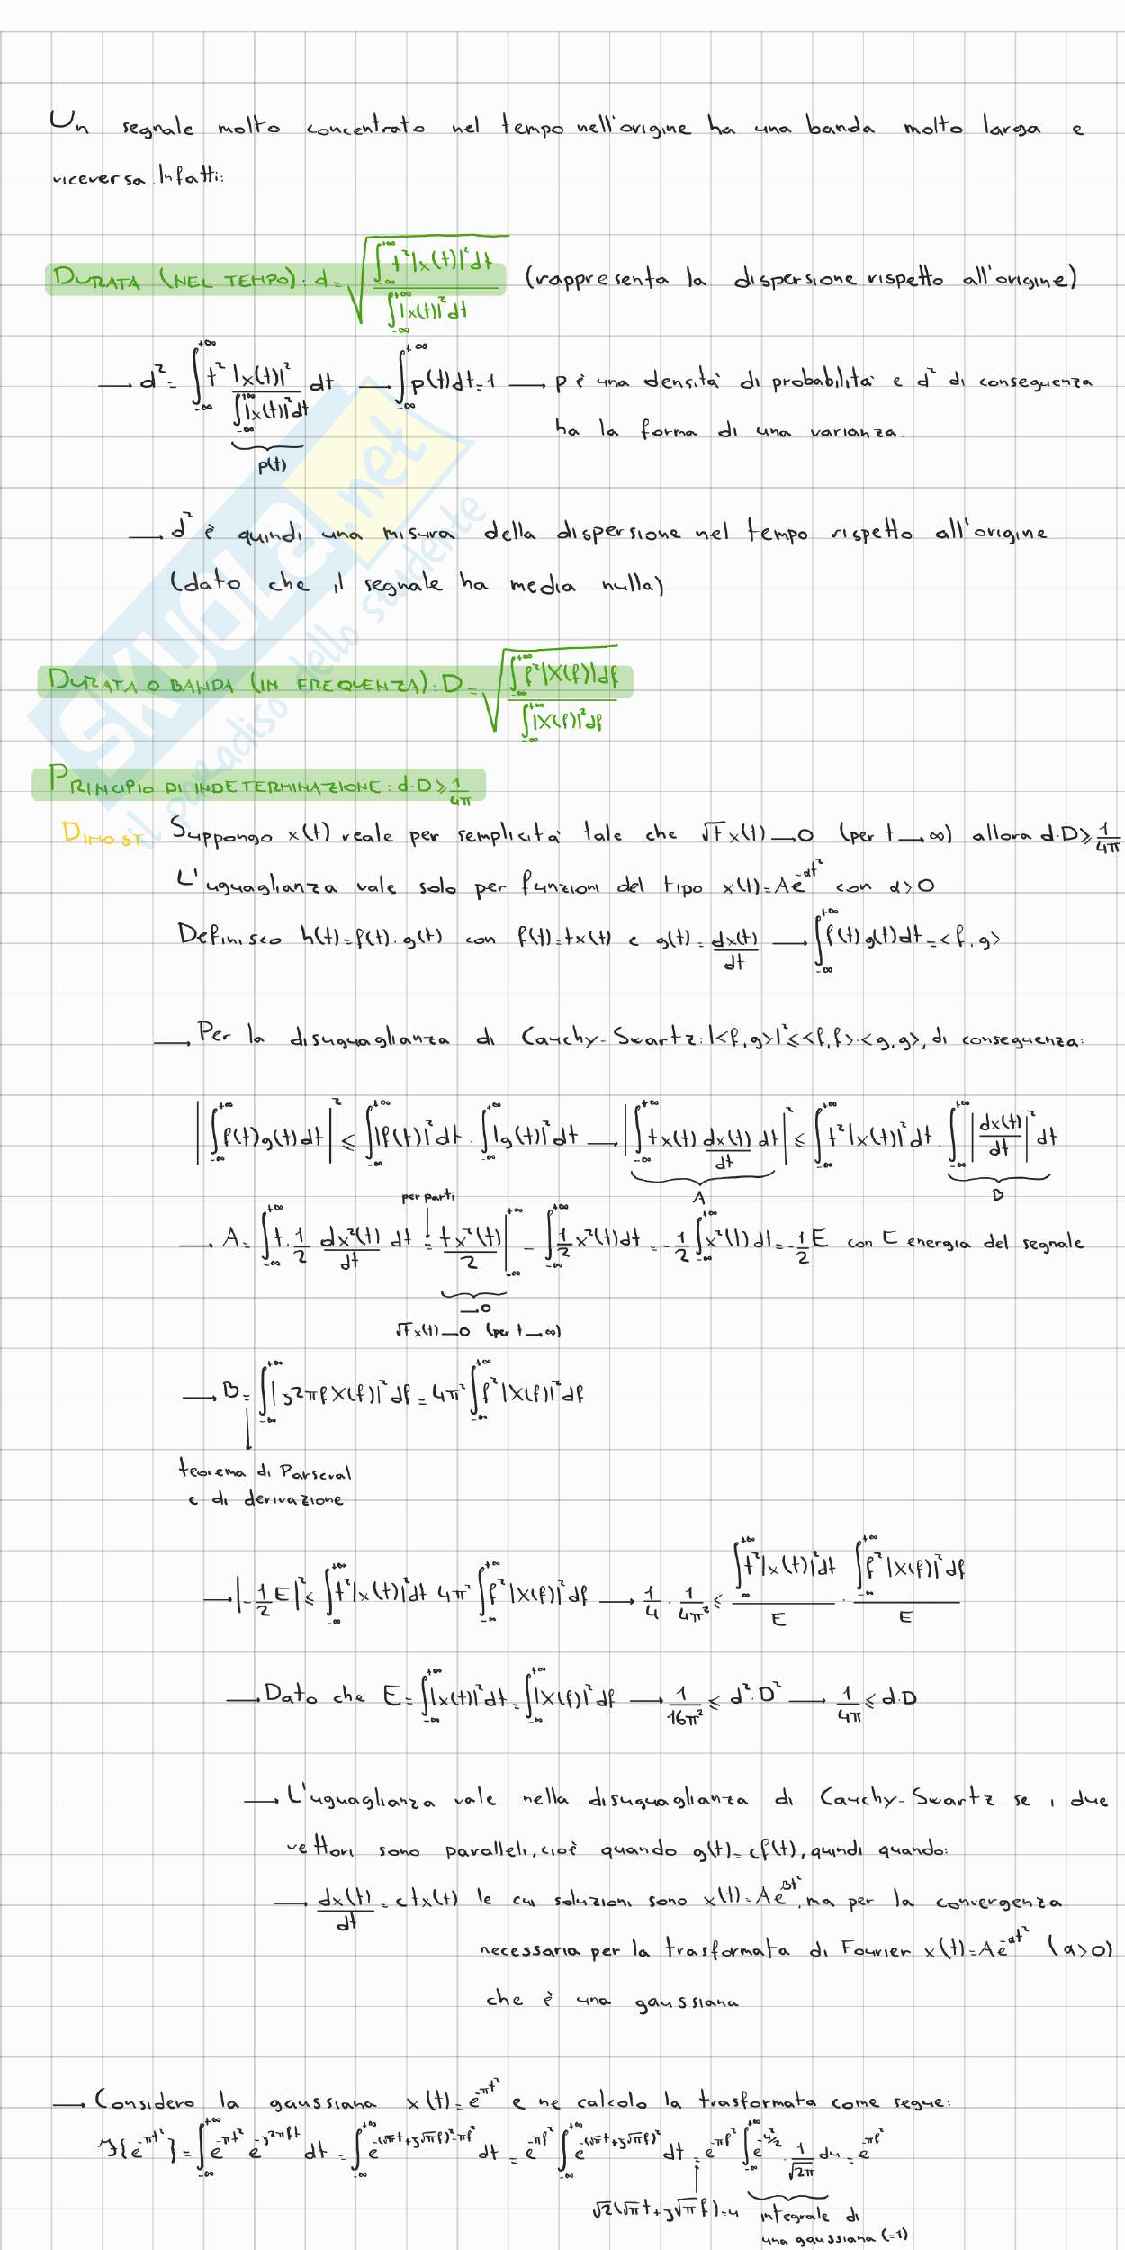 Un segnale molto concentrato nel tempo nell'origine ha una banda molto larga e
viceversa. Infatti:
DURATA (NEL TEMPO): d = √(∫_{-∞}^{+∞} t²|x(t)|²dt / ∫_{-∞}^{+∞} |x(t)|²dt) (rappresenta la dispersione rispetto all'origine)
→ d² = ∫_{-∞}^{+∞} t² |x(t)|² / ∫_{-∞}^{+∞} |x(t)|²dt dt → ∫_{-∞}^{+∞} p(t)dt = 1 → p è una densità di probabilità e d² di conseguenza
ha la forma di una varianza
p(t)
→ d² è quindi una misura della dispersione nel tempo rispetto all'origine
(dato che il segnale ha media nulla)
DURATA O BANDA (IN FREQUENZA): D = √(∫_{-∞}^{+∞} f²|X(f)|df / ∫_{-∞}^{+∞} |X(f)|²df)
PRINCIPIO DI INDETERMINAZIONE: d·D ≥ 1/4π
DIMOST. Suppongo x(t) reale per semplicità tale che √t x(t) → 0 (per t → ∞) allora d·D ≥ 1/4π
L'uguaglianza vale solo per funzioni del tipo x(t) = Ae^{-αt²} con α > 0
Definisco h(t) = f(t)·g(t) con f(t) = tx(t) e g(t) = dx(t)/dt → ∫_{-∞}^{+∞} f(t)g(t)dt = <f,g>
→ Per la disuguaglianza di Cauchy-Swartz: |<f,g>|² ≤ <f,f>·<g,g>, di conseguenza:
|∫_{-∞}^{+∞} f(t)g(t)dt|² ≤ ∫_{-∞}^{+∞} |f(t)|²dt · ∫_{-∞}^{+∞} |g(t)|²dt → |∫_{-∞}^{+∞} tx(t) dx(t)/dt dt|² ≤ ∫_{-∞}^{+∞} t²|x(t)|²dt · ∫_{-∞}^{+∞} |dx(t)/dt|² dt
A B
per parti
→ A = ∫_{-∞}^{+∞} t·1/2 dx²(t)/dt dt = tx²(t)/2 |_{-∞}^{+∞} - ∫_{-∞}^{+∞} 1/2 x²(t)dt = -1/2 ∫_{-∞}^{+∞} x²(t)dt = -1/2 E con E energia del segnale
→ 0
√t x(t) → 0 (per t → ∞)
→ B = ∫_{-∞}^{+∞} |j2πf X(f)|² df = 4π² ∫_{-∞}^{+∞} f²|X(f)|²df
teorema di Parseval
e di derivazione
→ |-1/2 E|² ≤ ∫_{-∞}^{+∞} t²|x(t)|²dt 4π² ∫_{-∞}^{+∞} f²|X(f)|²df → 1/4 · 1/4π² ≤ ∫_{-∞}^{+∞} t²|x(t)|²dt / E · ∫_{-∞}^{+∞} f²|X(f)|²df / E
→ Dato che E = ∫_{-∞}^{+∞} |x(t)|²dt = ∫_{-∞}^{+∞} |X(f)|²df → 1/16π² ≤ d²·D² → 1/4π ≤ d·D
→ L'uguaglianza vale nella disuguaglianza di Cauchy-Swartz se i due
vettori sono paralleli, cioè quando g(t) = cf(t), quindi quando:
→ dx(t)/dt = ctx(t) le cui soluzioni sono x(t) = Ae^{Bt²}, ma per la convergenza
necessaria per la trasformata di Fourier x(t) = Ae^{-αt²} (α>0)
che è una gaussiana
→ Considero la gaussiana x(t) = e^{-πt²} e ne calcolo la trasformata come segue:
F{e^{-πt²}} = ∫_{-∞}^{+∞} e^{-πt²} e^{-j2πft} dt = ∫_{-∞}^{+∞} e^{-(√πt+j√πf)²-πf²} dt = e^{-πf²} ∫_{-∞}^{+∞} e^{-(√πt+j√πf)²} dt = e^{-πf²} ∫_{-∞}^{+∞} e^{-u²/2} · 1/√2π du = e^{-πf²}
√2(√πt+j√πf) = u integrale di
una gaussiana (=1)
SKUOLA.net
il paradiso dello studente